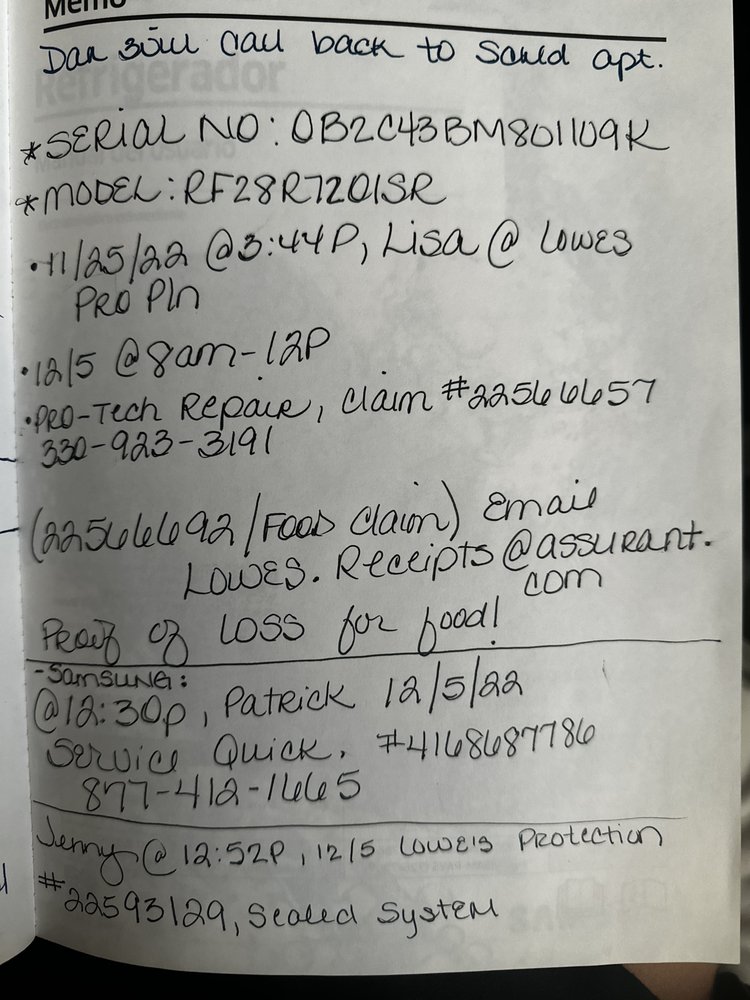 Memo
Dan will call back to Sched apt.
Refrigerador
*SERIAL NO: 0B2C43BM801109K
*MODEL: RF28R7201SR
•11/25/22 @3:44P, Lisa @ Lowes
PRO Pln
•12/5 @8am-12P
•PRO-Tech Repair, Claim #22566657
330-923-3191
(22566692/Food Claim) Email
Lowes.Receipts@assurant.
com
Proof of Loss for food!
-Samsung:
@12:30p, Patrick 12/5/22
Service Quick. #4168687786
877-412-1665
Jenny @ 12:52P, 12/5 Lowe's Protection
#22593129, Sealed System